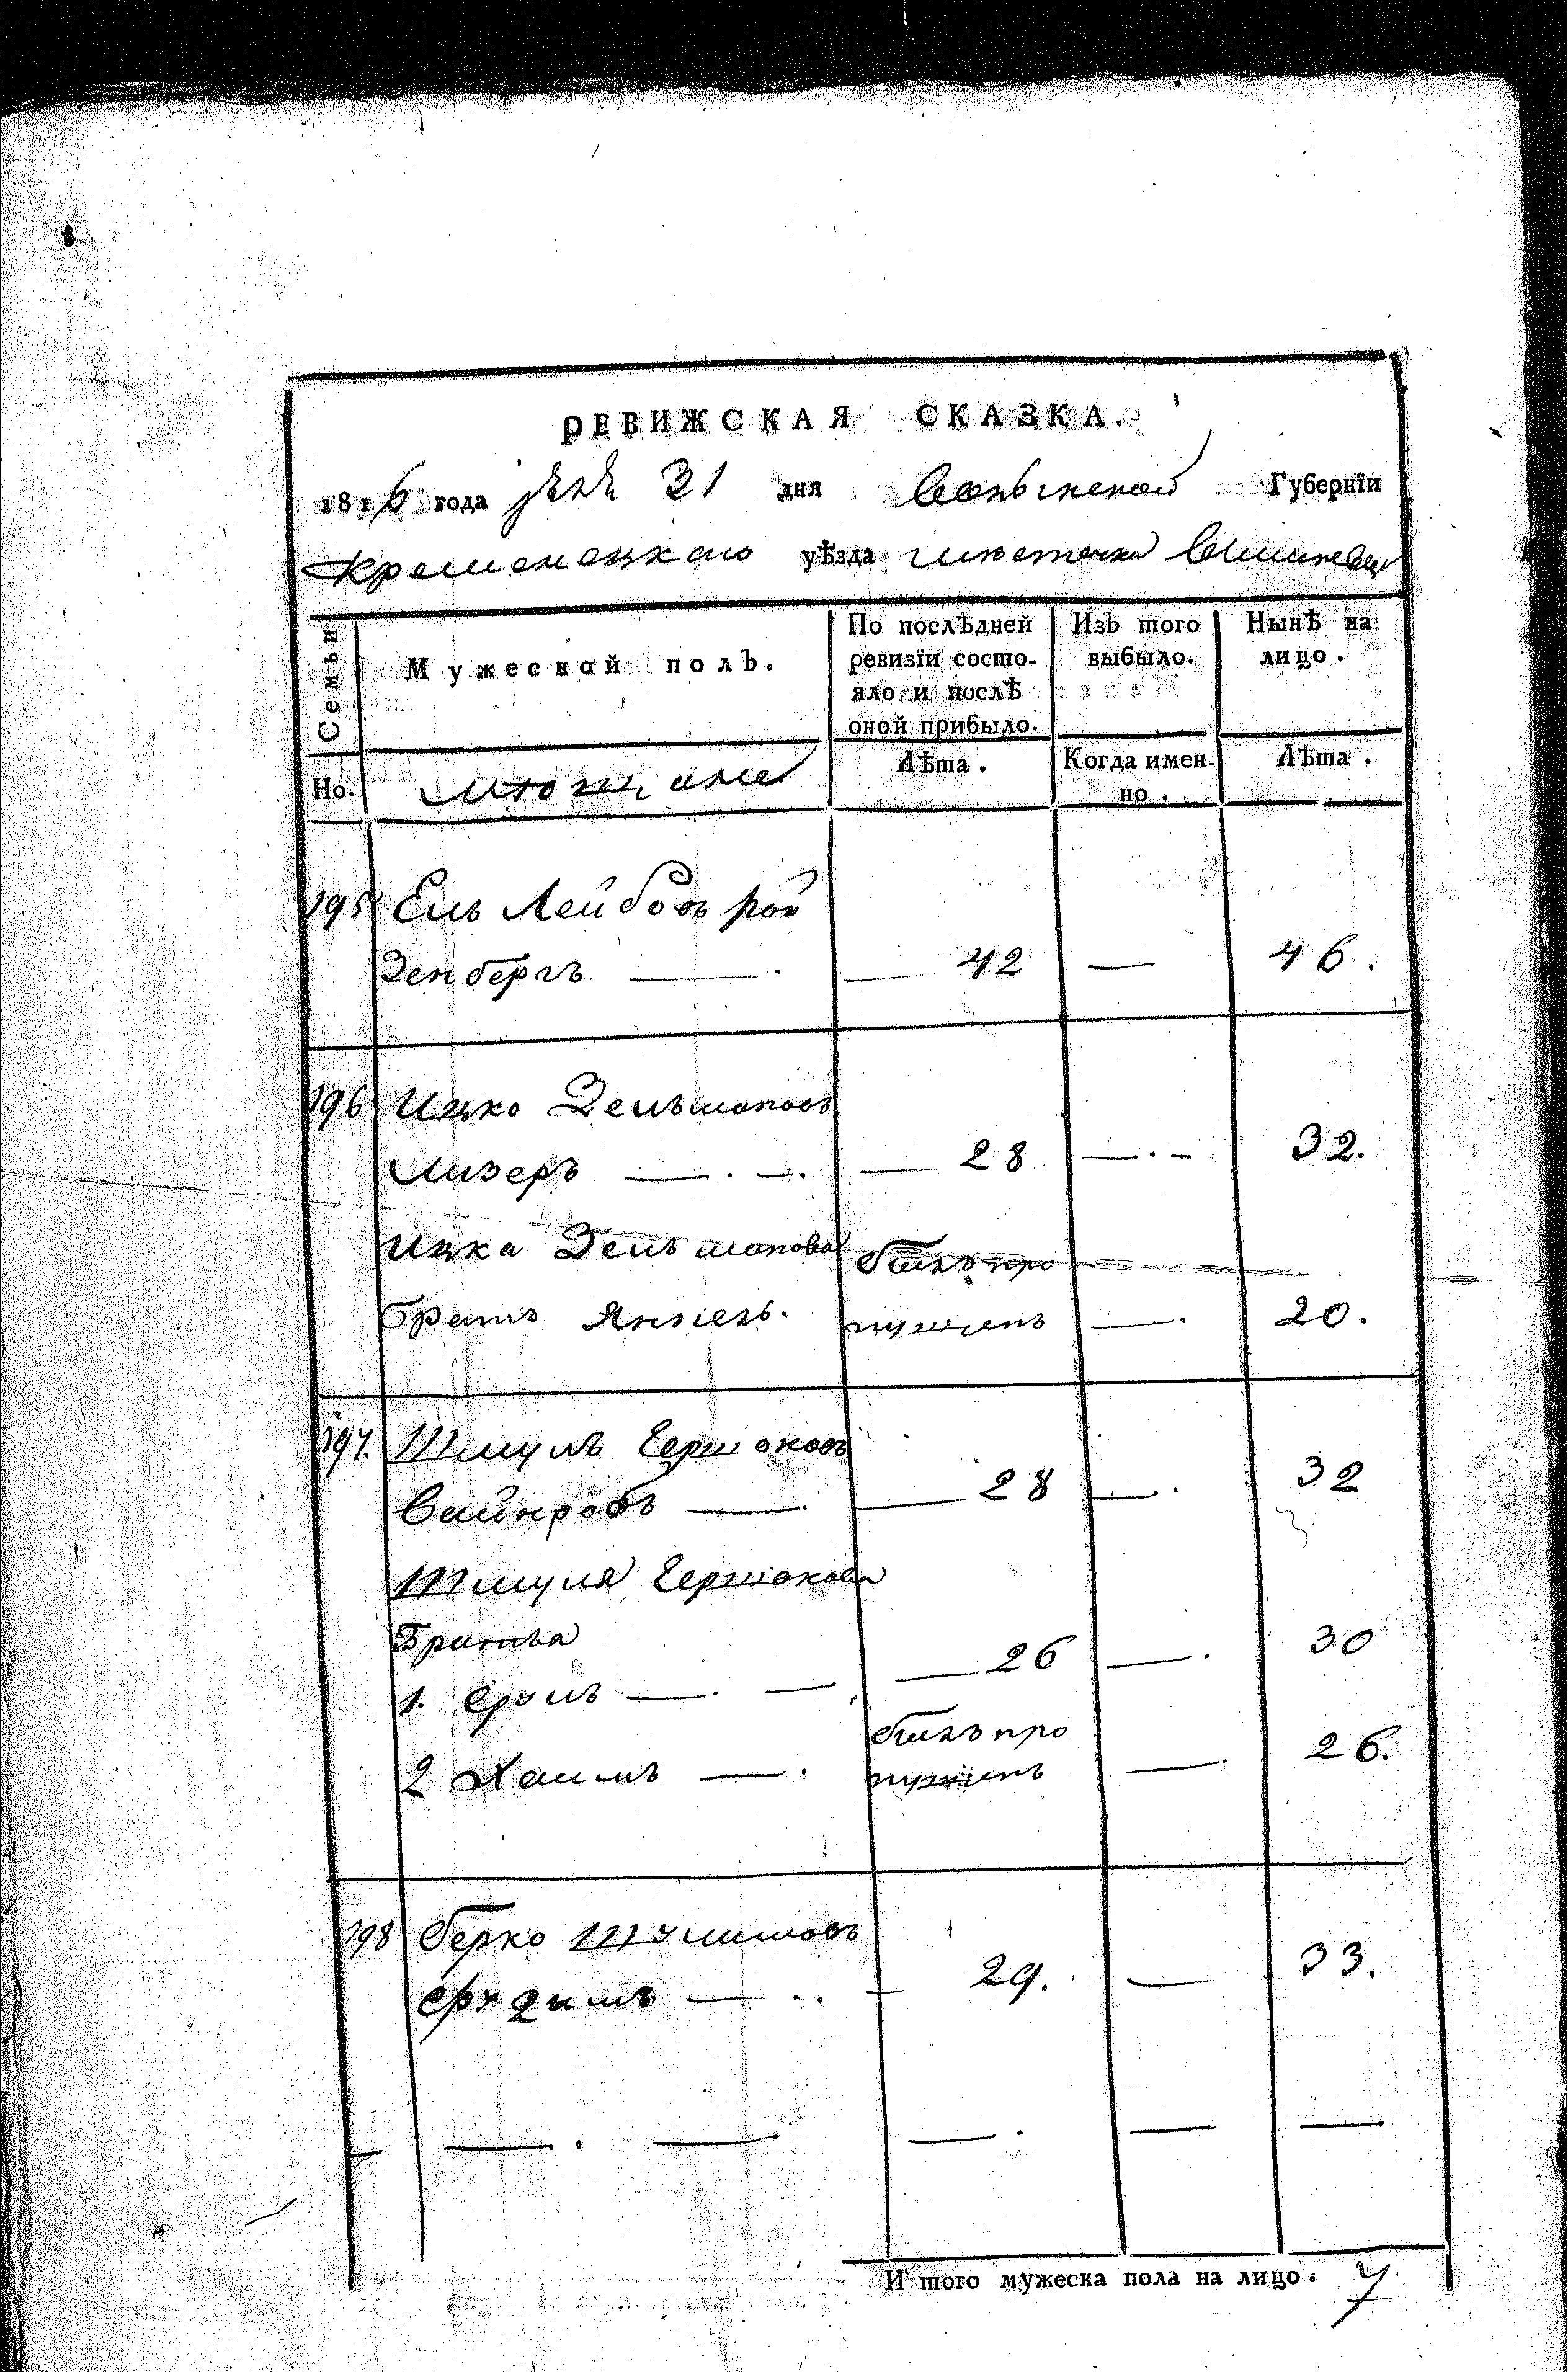 РЕВИЖСКАЯ СКАЗКА.
1816 года 31 дня Волынской Губернїи
Кременецкаго уѣзда мѣстечка Вишневца
Семьи
Мужеской полъ.
По послѣдней ревизїи состо-
яло и послѣ
оной прибыло.
Изъ того
выбыло.
Нынѣ на
лицо.
Но.
мѣщане
Лѣта.
Когда имен-
но.
Лѣта.
195 Ель Лейбовъ Рой
зенбергъ — 42 — 46.
196 Ицко Зельмановъ
Мизеръ — 28 — 32.
Ицка Зельманова былъ про
Братъ Янкель. пущенъ — 20.
197. Шмуль Гершковъ
Вайнробъ — 28 — 32
Шмуля Гершкова
Братья
1. Сруль — 26 — 30
2 Хаимъ — былъ про
пущенъ — 26.
198 Берко
— 29. — 33.
И того мужеска пола на лицо. 7